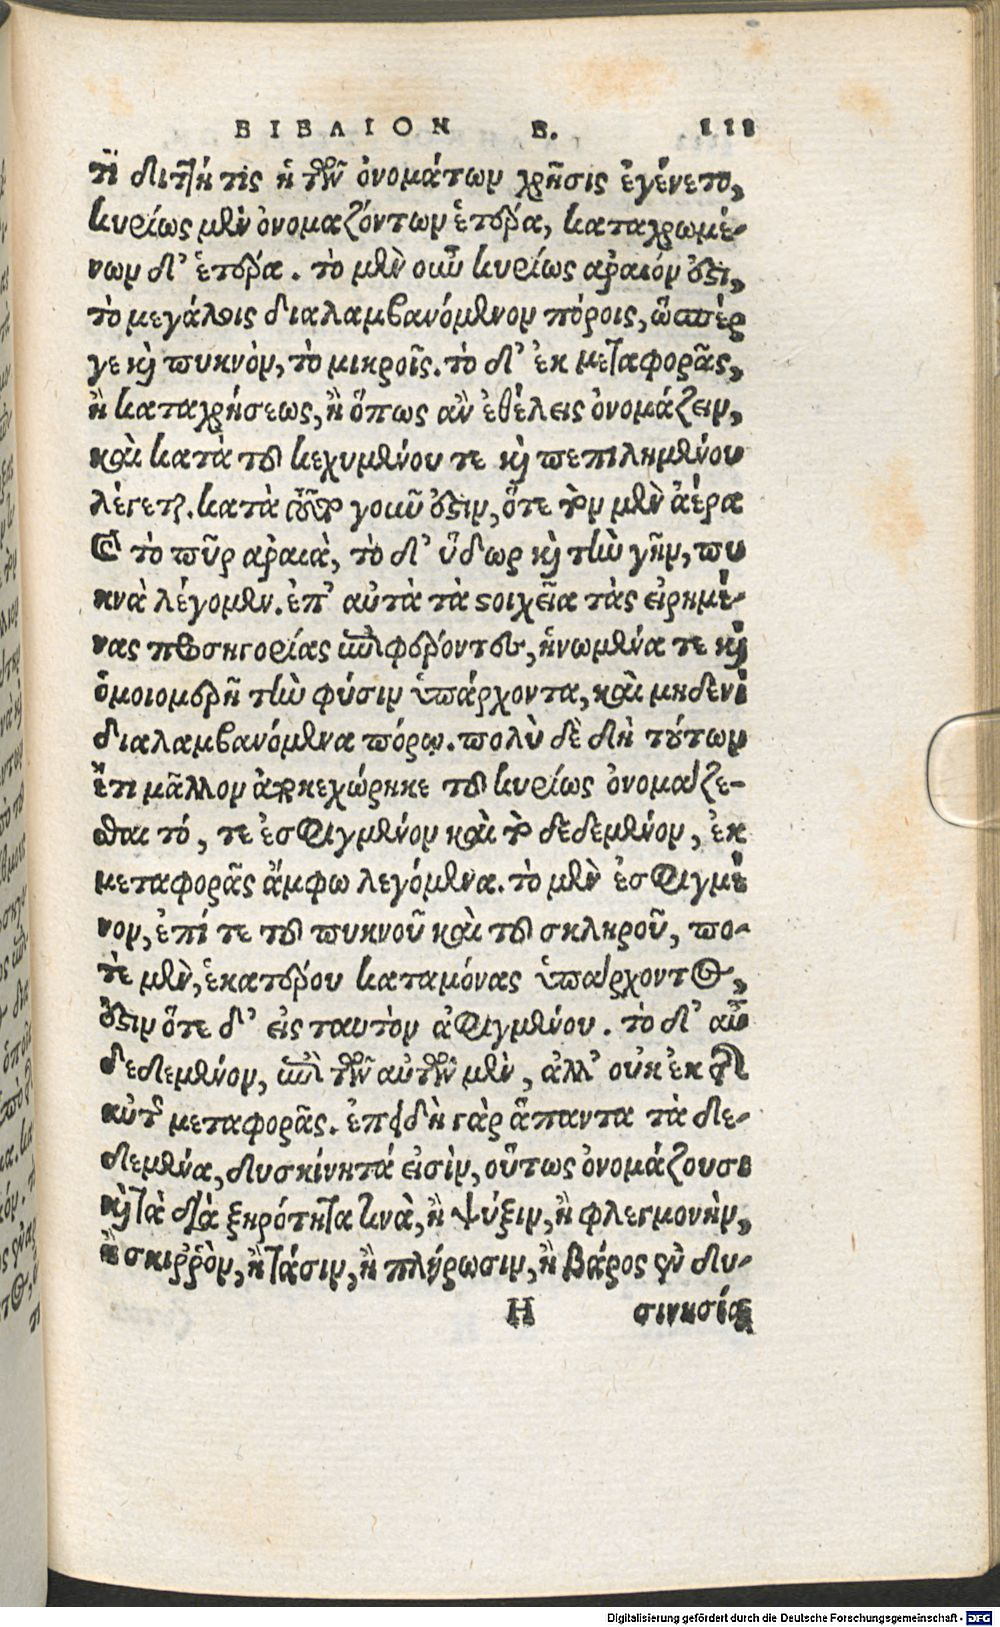 ΒΙΒΛΙΟΝ Β. 111
τι διττή τις ἡ τῶν ὀνομάτων χρῆσις ἐγένετο,
κυρίως μὲν ὀνομαζόντων ἕτερα, καταχρωμέ-
νων δ' ἕτερα. τὸ μὲν οὖν κυρίως ἀραιόν ὅστιν,
τὸ μεγάλοις διαλαμβανόμενον πόροις, ὥσπερ
γε καὶ πυκνὸν, τὸ μικροῖς. τὸ δ' ἐκ μεταφορᾶς,
ἢ καταχρήσεως, ἢ ὅπως ἂν ἐθέλεις ὀνομάζειν,
καὶ κατὰ τοῦ κεχυμένου τε καὶ πεπιλημένου
λέγεται. κατὰ γοῦν ὅτε τὸν μὲν ἀέρα
καὶ τὸ πῦρ ἀραιὰ, τὸ δ' ὕδωρ καὶ τὴν γῆν, πυ
κνὰ λέγομεν. ἐπ' αὐτὰ τὰ στοιχεῖα τὰς εἰρημέ-
νας προσηγορίας ἐπιφέροντες, ἡνωμένα τε καὶ
ὁμοιομερῆ τὴν φύσιν ὑπάρχοντα, καὶ μηδενὶ
διαλαμβανόμενα πόρῳ. πολὺ δὲ δὴ τούτων
ἔτι μᾶλλον ἀποκεχώρηκε τοῦ κυρίως ὀνομάζε-
σθαι τό, τε ἐσφιγμένον καὶ τὸ δεδεμένον, ἐκ
μεταφορᾶς ἄμφω λεγόμενα. τὸ μὲν ἐσφιγμέ
νον, ἐπί τε τοῦ πυκνοῦ καὶ τοῦ σκληροῦ, πο-
τὲ μὲν, ἑκατέρου καταμόνας ὑπάρχοντος,
ἔστιν ὅτε δ' εἰς ταυτὸν ἀφιγμένου. τὸ δ' αὖ
δεδεμένον, ἐπὶ τῶν αὐτῶν μὲν, ἀλλ' οὐκ ἐκ τῆς
αὐτῆς μεταφορᾶς. ἐπειδὴ γὰρ ἅπαντα τὰ δε-
δεμένα, δυσκίνητά εἰσιν, οὕτως ὀνομάζουσι
καὶ τὰ διὰ ξηρότητα τινὰ, ἢ ψύξιν, ἢ φλεγμονὴν,
ἢ σκιῤῥὸν, ἢ τάσιν, ἢ πλήρωσιν, ἢ βάρος ἐν δυ-
Η σινησίᾳ
Digitalisierung gefördert durch die Deutsche Forschungsgemeinschaft - DFG